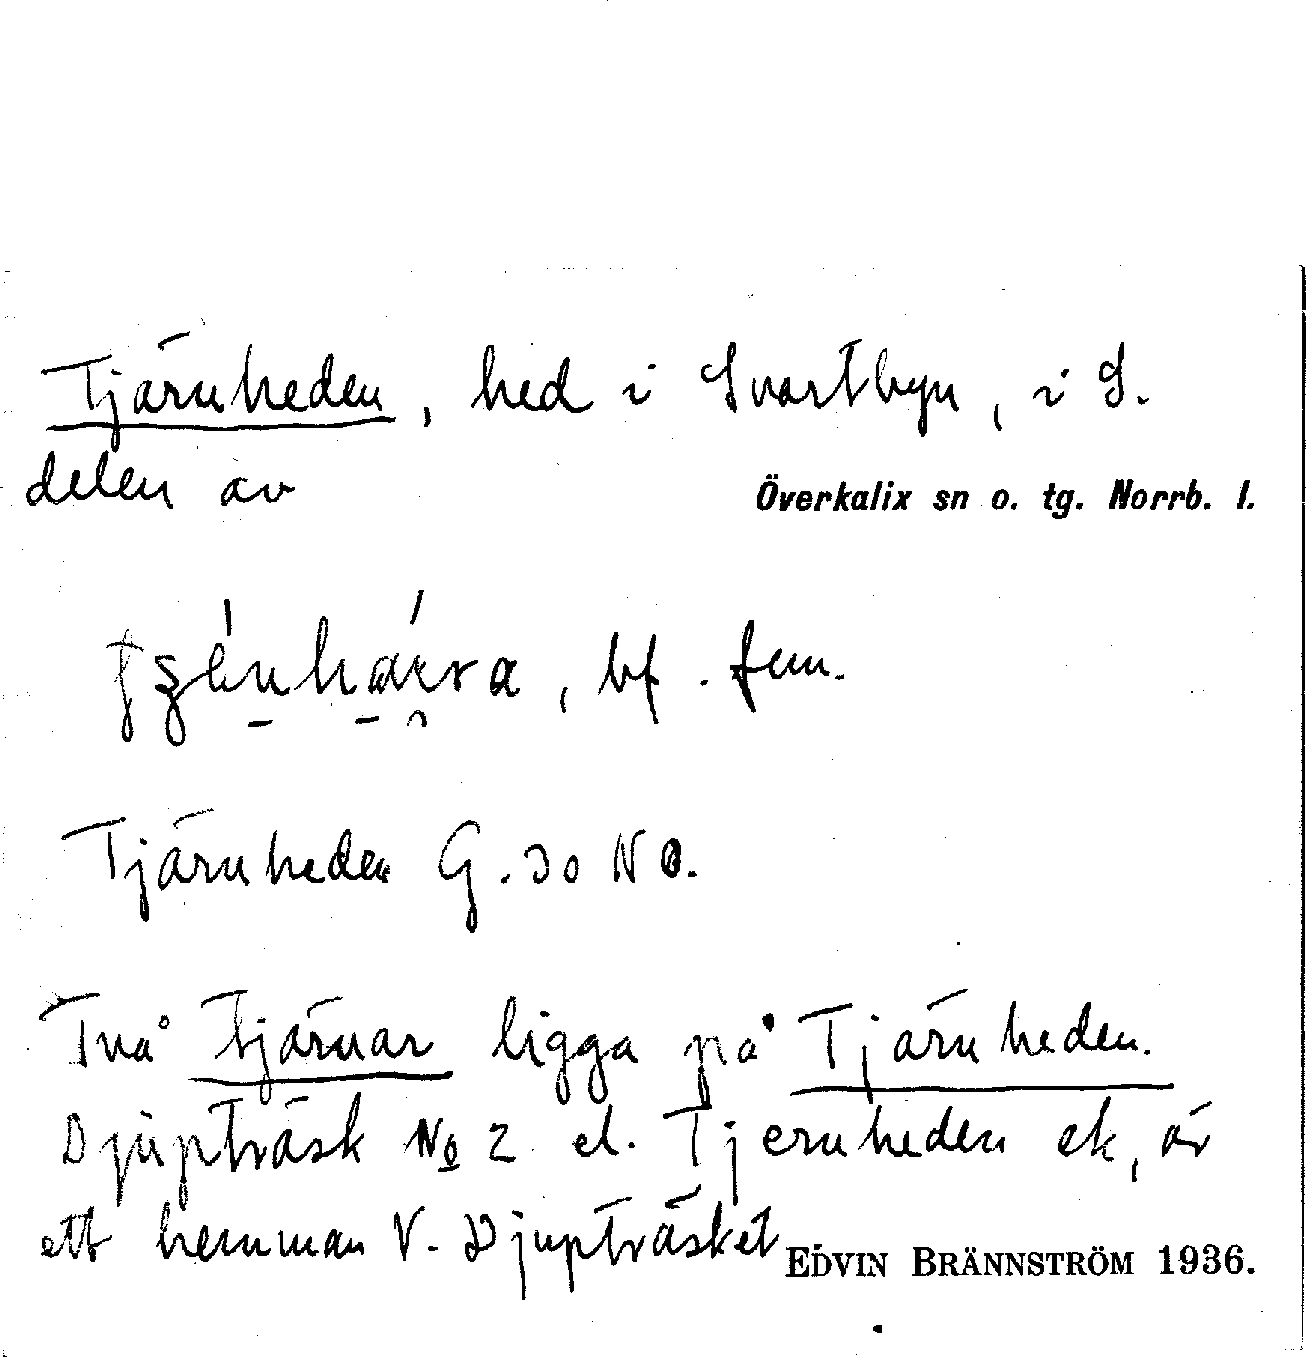 Tjärnheden, hed i Svartbyn, i S.
delen av Överkalix sn o. tg. Norrb. l.
, bf. fem.
Tjärnheden G. 30 NO.
Två tjärnar ligga på Tjärnheden.
Djupträsk No 2 el. Tjernheden ek, är
ett hemman V. Djupträsket EDVIN BRÄNNSTRÖM 1936.